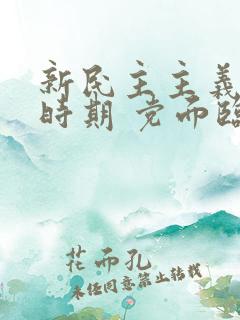 新民主主義
時期 党而臨
花而孔
未经同意禁止转载